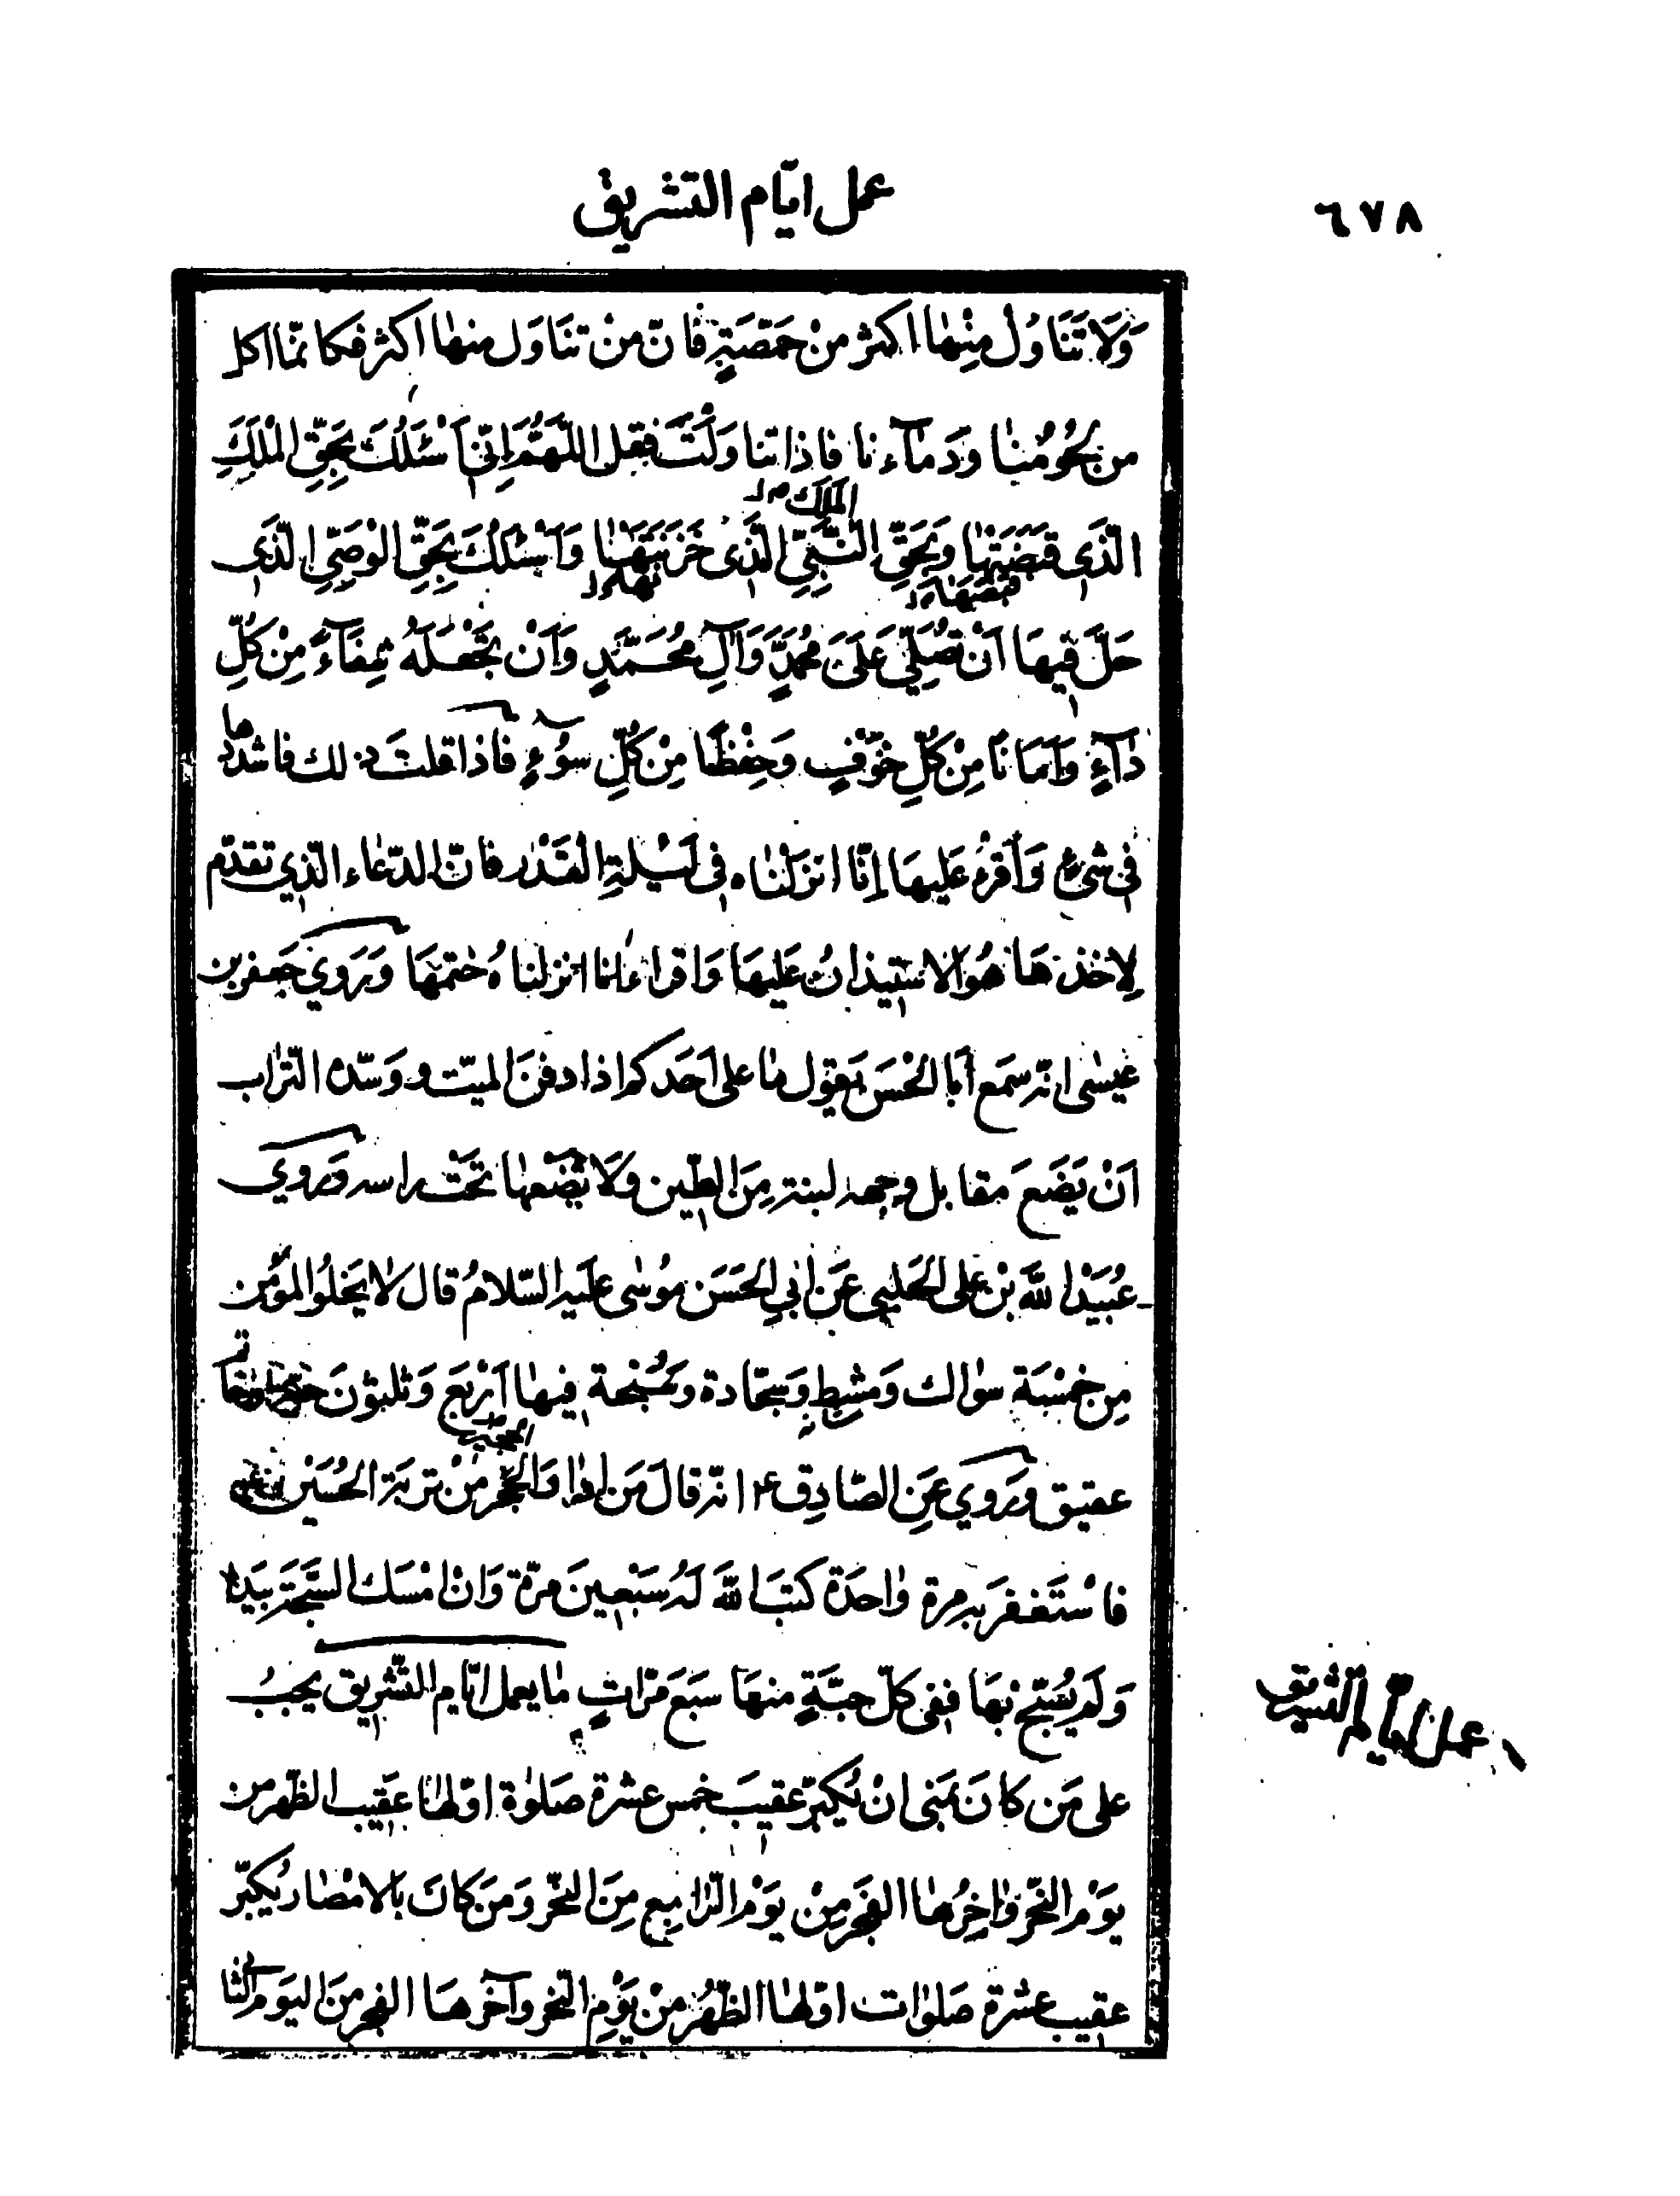 ٦٧٨
عمل ايّام التشريق
وَلَا تَنَاوُلْ مِنْهٰا اكثر منْ حِمَّصَةٍ فانّ منْ تنَاوَل منهٰا اكثر فكانّما اكل
من لُحُومُنٰا ودَمٰآءنا فاذا تناوَلْتَ فقل اللّهُمَّ اِنّى اَسْئَلُكَ بِحَقِّ الْمَلَكِ
الملك
الّذَى قبَضَهٰا وَبِحَقِّ النَّبِىِّ الَّذى خَزَنَهٰا وَاَسْئَلُكَ بِحَقِّ الْوَصِىِّ الّذَى
حَلَّ فيهَا اَنْ تُصَلِّىَ عَلىَ مُحَمَّدٍ وَآلِ محُمَّدٍ وَاَنْ تَجْعَلَهُ شِفَآءً مِنْ كُلِّ
دٰآءٍ وَاَمٰانًا مِنْ كُلِّ خَوْفٍ وَحِفْظًا مِنْ كُلِّ سُوۤءٍ فاذا قلتَ ذلك فاشددها
فى شىءٍ وَاَقرءْ عَليهَا اِنّا انزلْنٰاه فى لَيْلةِ الْقَدْر فانّ الدّعٰاء الّذي تقدّم
لِاخذهَا هُو الاستيذانُ عَليهَا وَاقراء انا انزلناهُ ختمهَا وَرَوي جَعفر بن
عيسٰى انّه سمَع اَبا الحْسَن يَقول مٰا على اَحَدكم اذا دفنَ الميّت ووَسّده التّراب
اَنْ يَضَعَ مقابل وجهه لبنة مِنَ الطّين ولَا يضَعهٰا تَحْت راسه وَروي
عُبَيْدُ اللّه بْن على الحَلبى عَن ابىِ الحَسَن مُوسٰى عليه السّلامُ قال لا يَخلُو المؤمن
مِن خمْسَة سوٰاك وَمشط وَسجّادة وَسُبْحة فيهٰا اَرْبَع وَثلثونَ حبّة وخاتم
عقيق ورَوي عَنِ الصّادِق ع انّه قالَ مَن ادٰار الحجر مِنْ تربَة الحُسَيْن
فاسْتَغفرَ به مرة وٰاحدَة كتبَ اللّه لَهُ سَبْعينَ مرّة وَانْ امْسَك السّبحَة بيَده
وَلَم يُسَبّح بهَا ففى كلّ حبّةٍ منهَا سَبَعَ مَرّاتٍ مٰا يعمل ايّام التّشريق يجبُ
على مَن كانَ بمَنى انْ يُكبّر عقيبَ خمس عشرة صَلٰوة اوّلهٰا عَقيب الظّهر من
يَوْم النّحر وٰاخِرُهٰا الفَجر مِنْ يَوْم الرّابِع مِنَ النّحر وَمَن كانَ بالامْصٰار يُكبّر
عقيب عشرة صَلوٰات اوّلهٰا الظّهُر منْ يَوْمِ النّحر وآخرهَا الفجر منَ اليَوم الثّا
عمل ايام التشريق